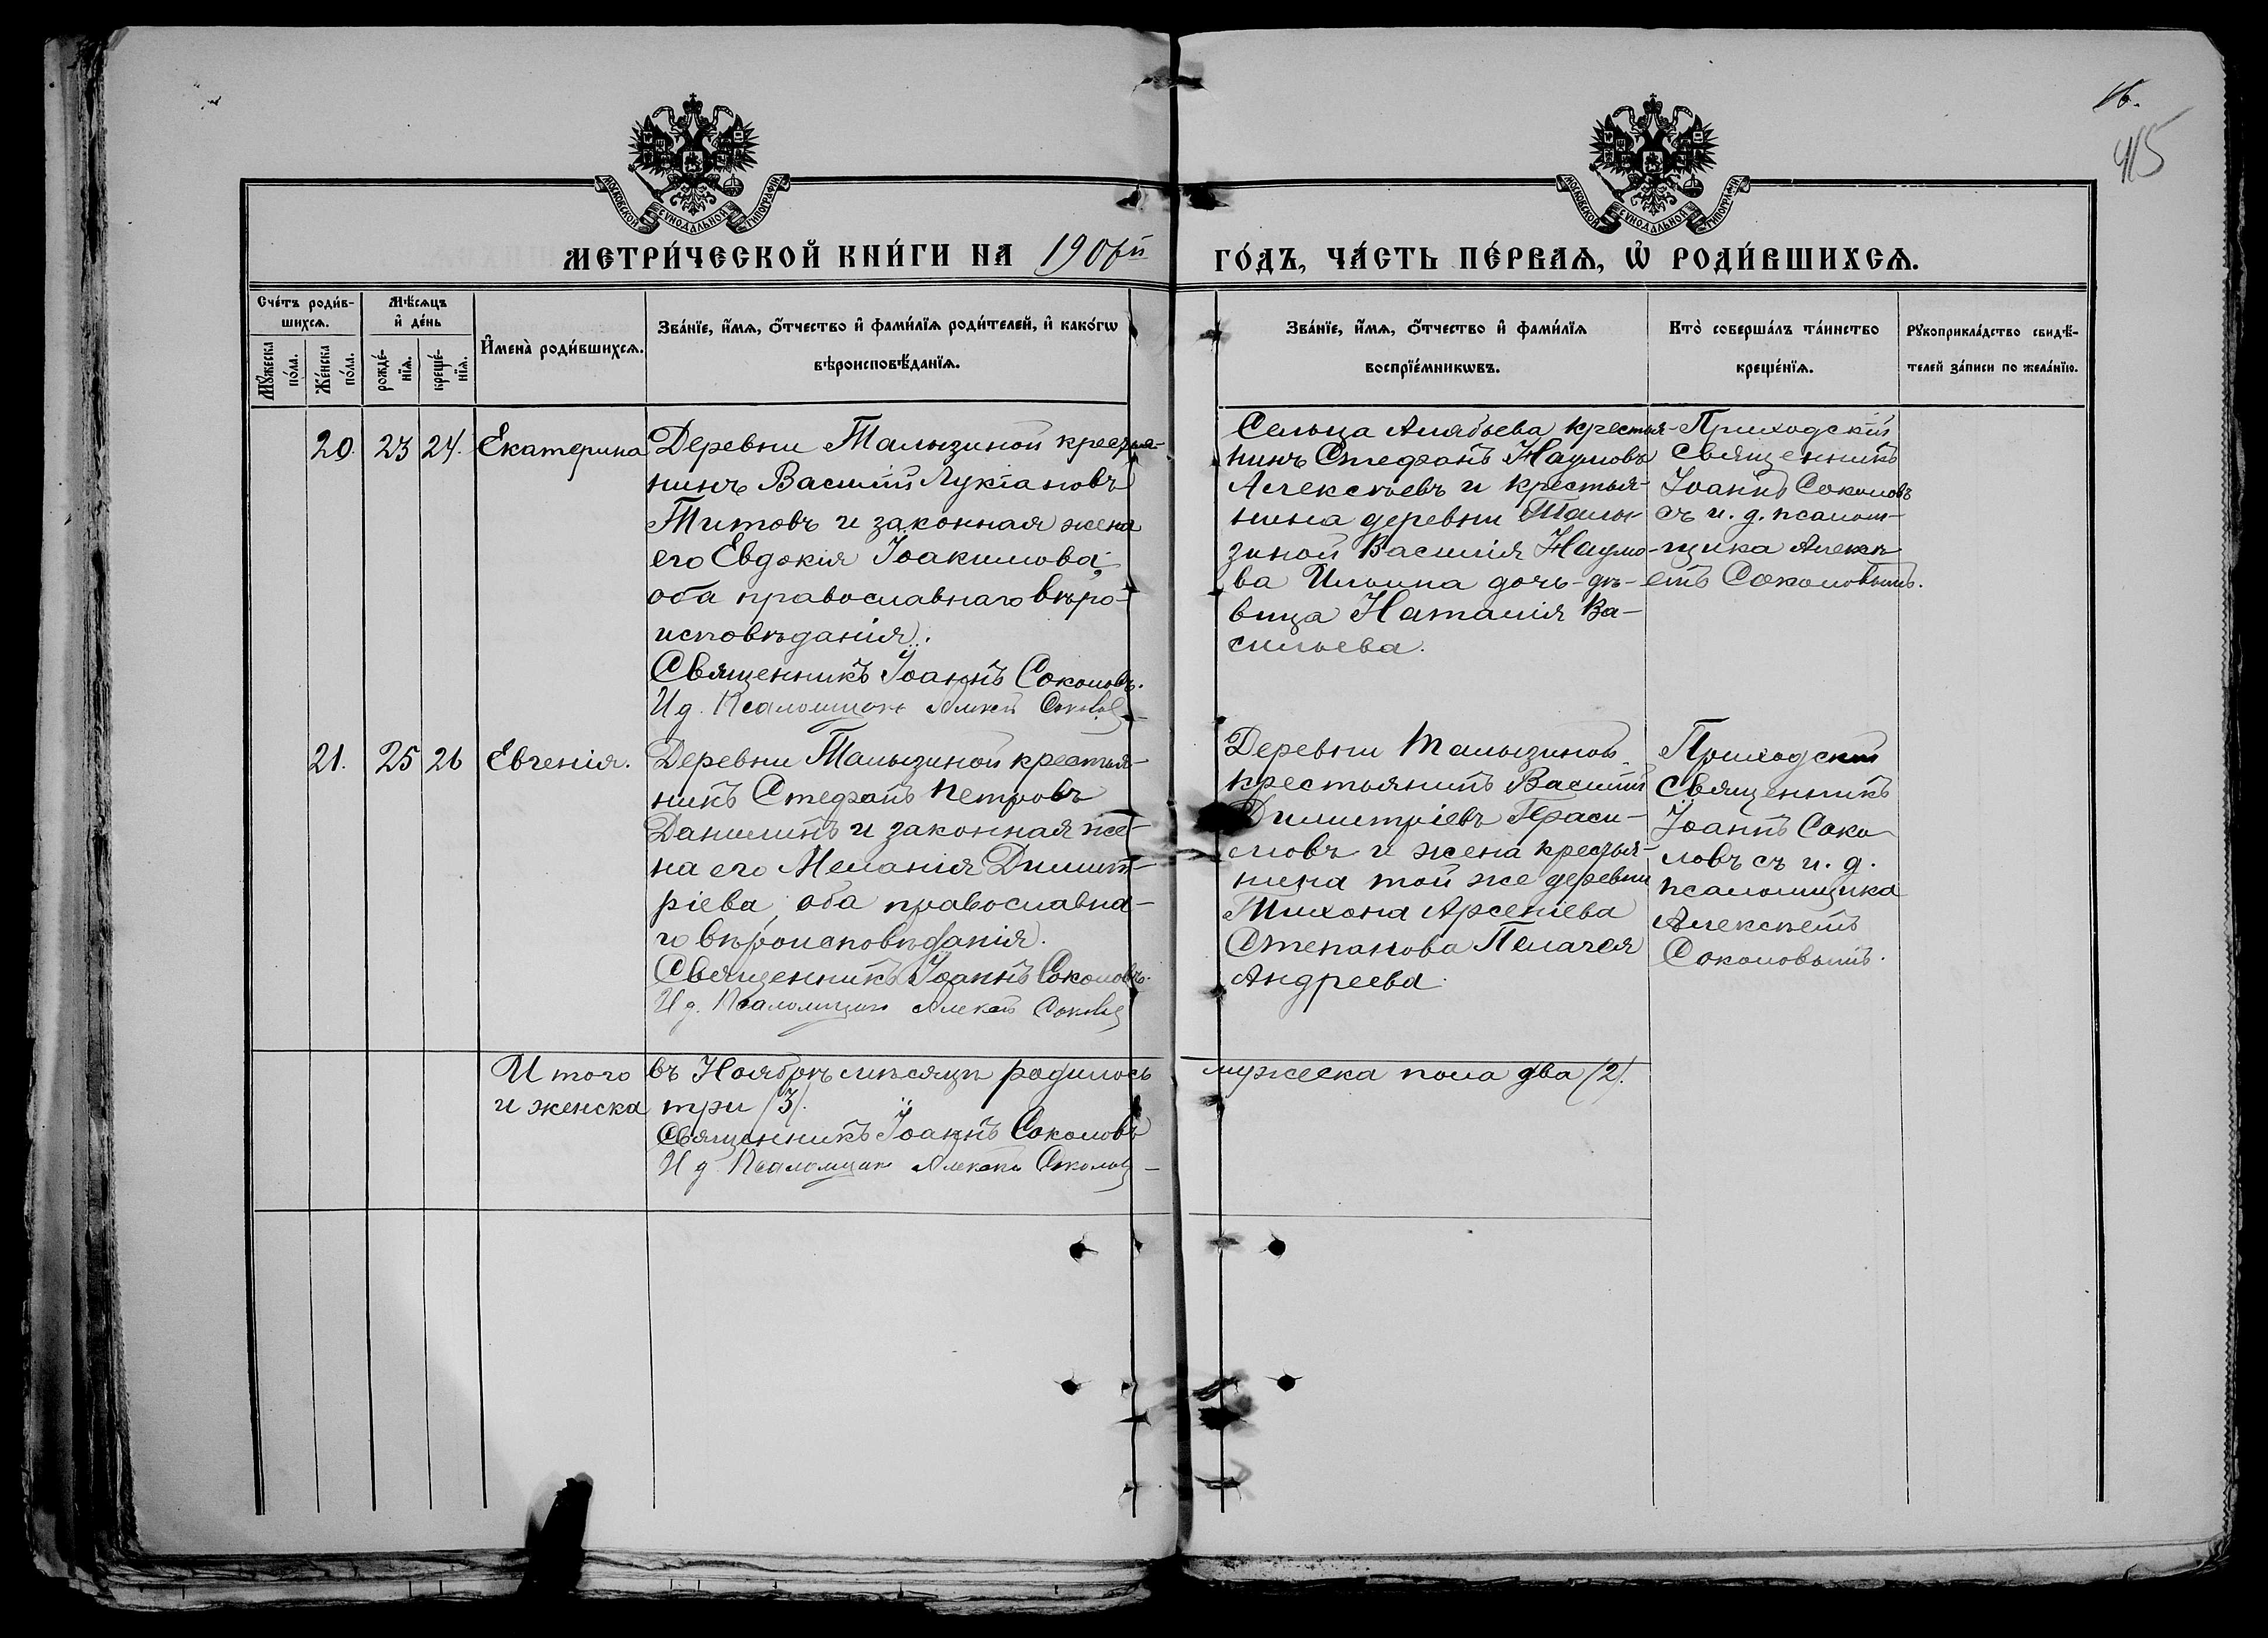 16.
415
МОСКОВСКОЙ СѴНОДАЛЬНОЙ ТИПОГРАФІИ
МОСКОВСКОЙ СѴНОДАЛЬНОЙ ТИПОГРАФІИ
МЕТРИ́ЧЕСКОЙ КНИ́ГИ НА
ГО́ДЪ, ЧА́СТЬ ПЕ́РВАѦ, Ѡ҆ РОДИ́ВШИХСѦ.
Сче́тъ роди́в-
шихсѧ.
Мꙋ́жеска по́ла.
Же́нска по́ла.
Мѣ́сѧцъ
и҆ де́нь
рожде́-
нїѧ.
креще́-
нїѧ.
И҆мена̀ роди́вшихсѧ.
Зва́нїе, и҆́мѧ, ѻ҆́тчество и҆ фами́лїѧ роди́телей, и҆ како́гѡ
вѣроисповѣ́данїѧ.
Зва́нїе, и҆́мѧ, ѻ҆́тчество и҆ фами́лїѧ
воспрїе́мникѡвъ.
Кто̀ соверша́лъ та́инство
креще́нїѧ.
Рꙋкоприкла́дство свидѣ́-
телей за́писи по жела́нїю.
20. 23 24. Екатерина
Деревни Талызиной крестья-
нинъ Василій Лукіановъ
Титовъ и законная жена
его Евдокія Іоакимова,
оба православнаго вѣро-
исповѣданія.
Священникъ Іоаннъ Соколовъ.
И д. Псаломщика Алексѣй Соколовъ
Сельца Алябьева крестья-
нинъ Стефанъ Наумовъ
Алексѣевъ и крестья-
нина деревни Талы-
зиной Василія Наумо-
ва Ильина дочь-дѣ-
вица Наталія Ва-
сильева.
Приходскій
священникъ
Іоаннъ Соколовъ
съ и. д. псалом-
щика Алексѣ-
емъ Соколовымъ.
21. 25 26 Евгенія.
Деревни Талызиной крестья-
нинъ Стефанъ Петровъ
Данилинъ и законная же-
на его Меланія Димит-
ріева, оба православна-
го вѣроисповѣданія.
Священникъ Іоаннъ Соколовъ.
И д. Псаломщика Алексѣй Соколовъ
Деревни Талызиной
крестьянинъ Василій
Димитріевъ Гераси-
мовъ и жена крестья-
нина той же деревни
Тихона Арсеніева
Степанова Пелагея
Андреева.
Приходскій
священникъ
Іоаннъ Соко-
ловъ съ и. д.
псаломщика
Алексѣемъ
Соколовымъ.
Итого въ Ноябрѣ мѣсяцѣ родилось мужеска пола два (2).
и женска три (3).
Священникъ Іоаннъ Соколовъ
И д. Псаломщика Алексѣй Соколовъ